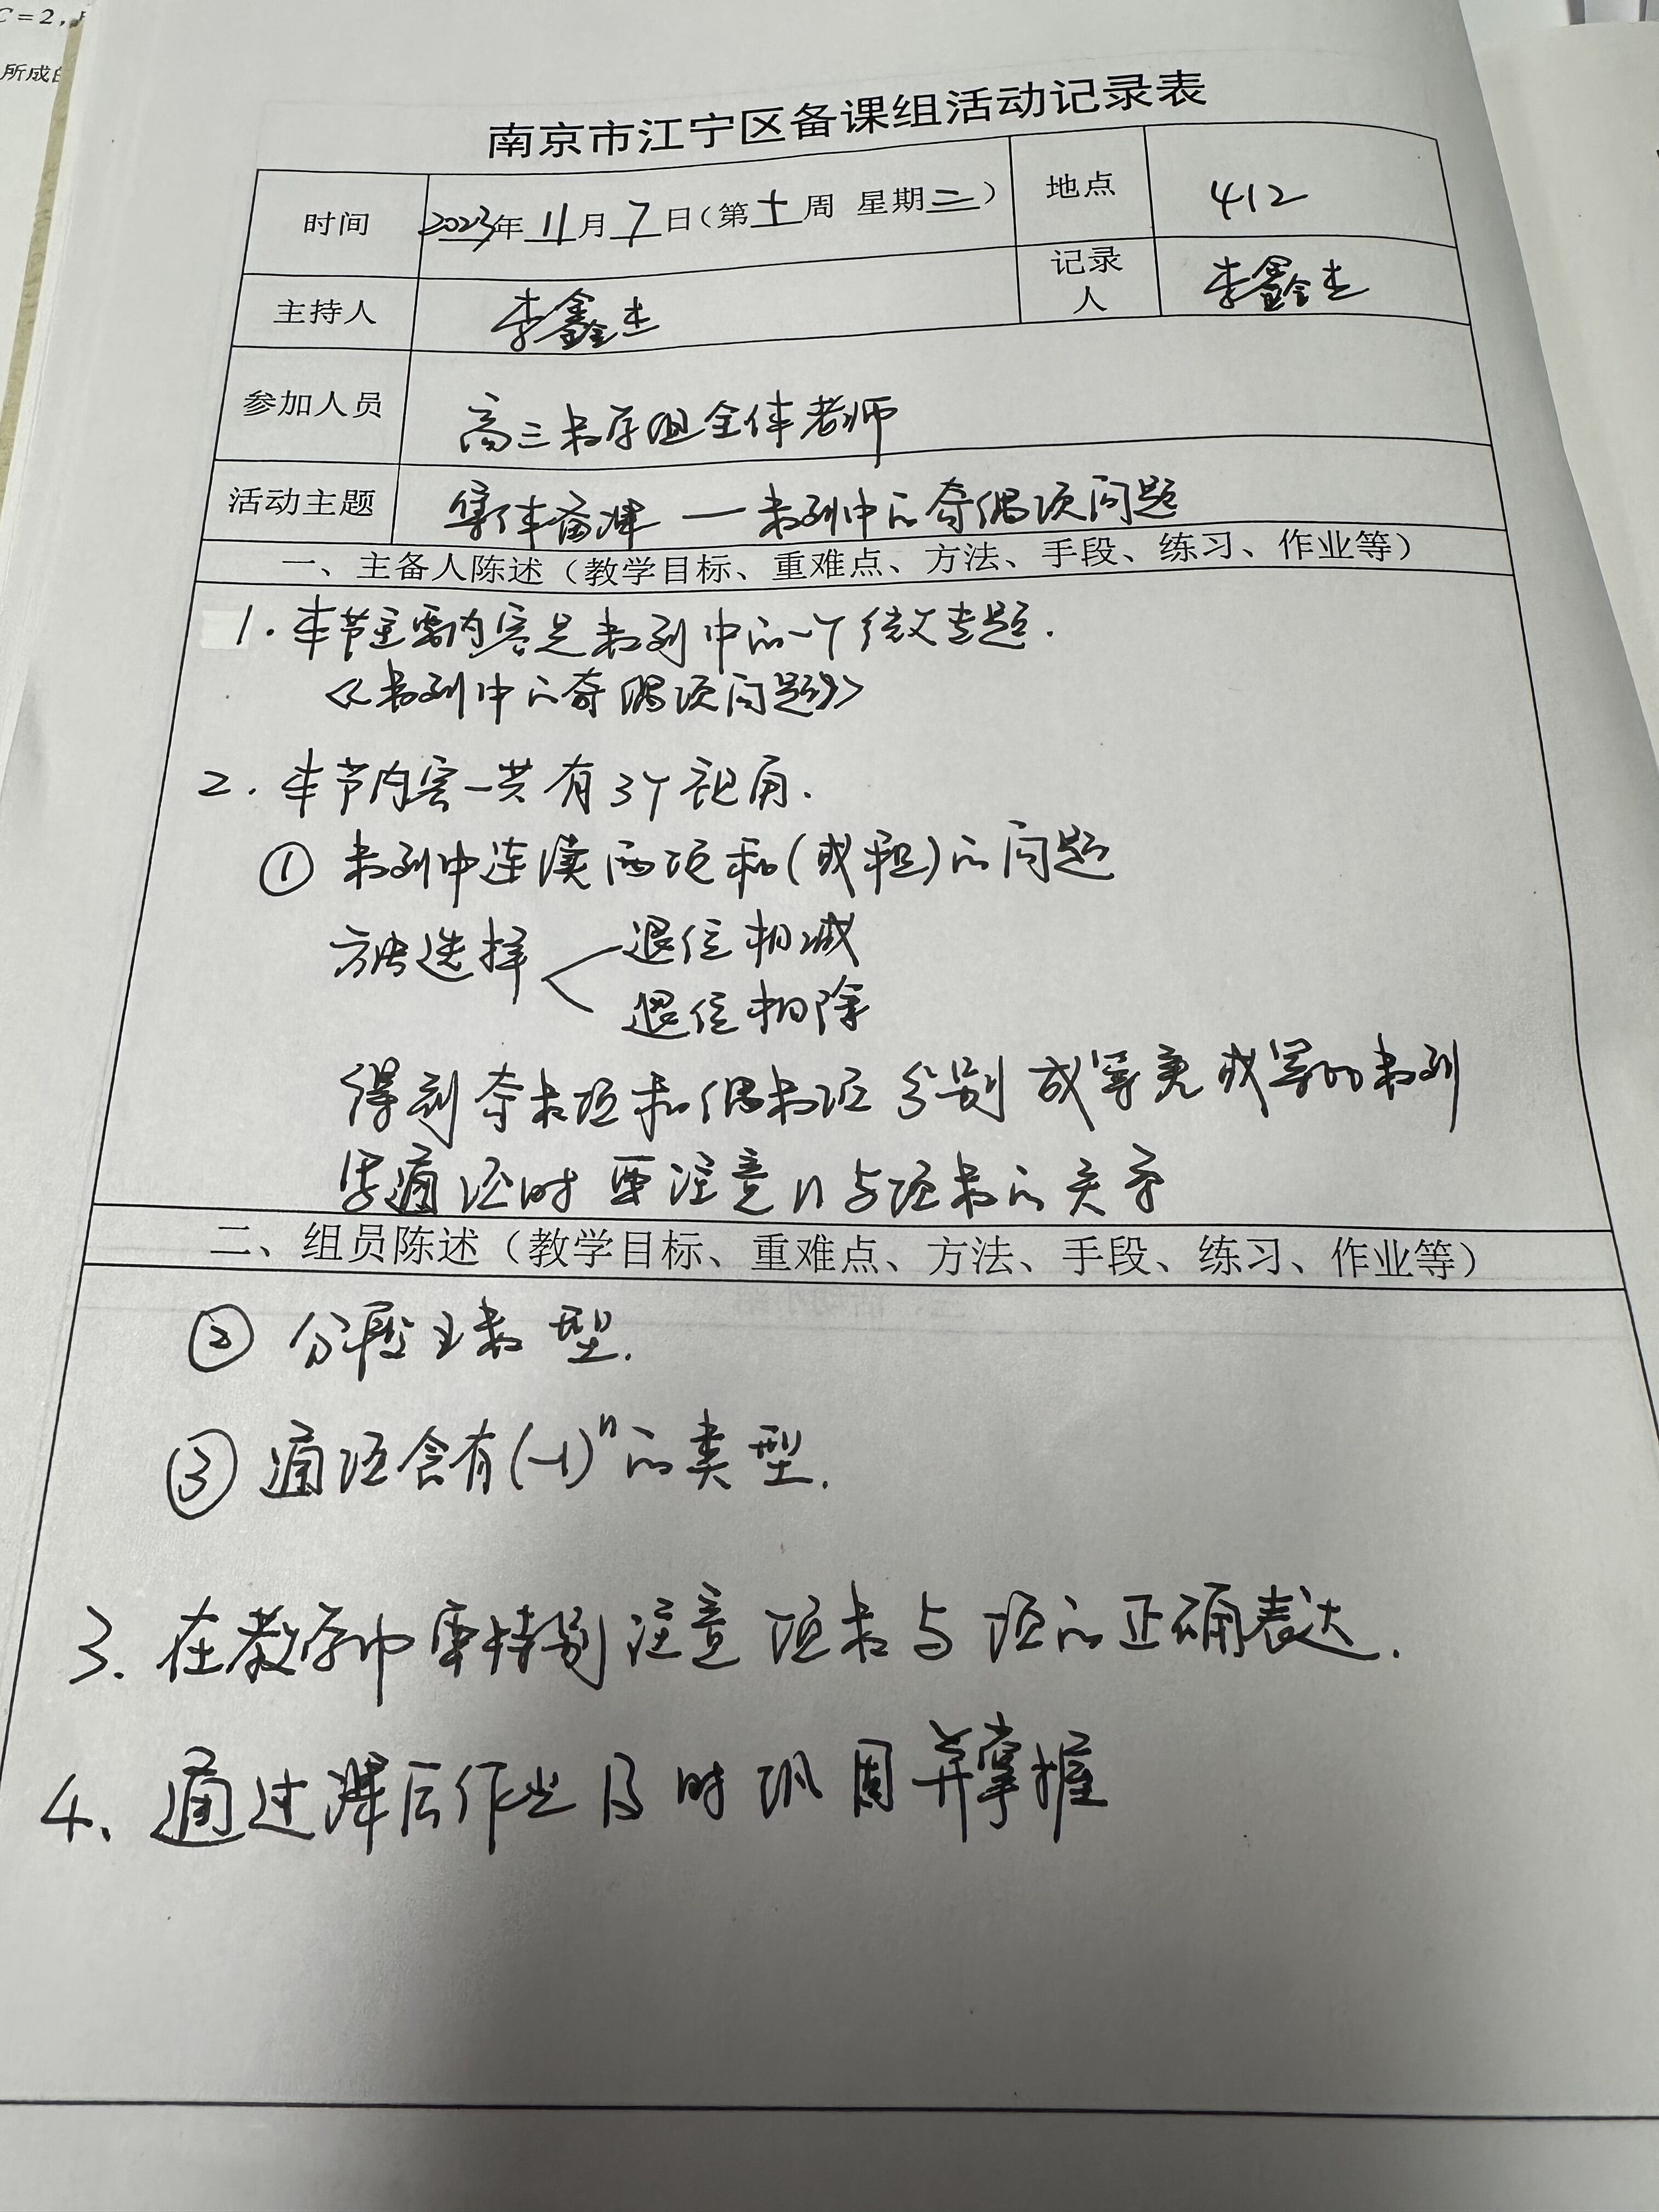 C=2,
所成
南京市江宁区备课组活动记录表
时间 2023年 11月 7日(第十周 星期二) 地点 412
主持人 李鑫杰 记录人 李鑫杰
参加人员 高三数学组全体老师
活动主题 集体备课 — 数列中的奇偶项问题
一、主备人陈述（教学目标、重难点、方法、手段、练习、作业等）
1. 本节主要内容是数列中的一个微专题.
《数列中的奇偶项问题》
2. 本节内容一共有3个视角.
① 数列中连续两项和(或积)的问题
方法选择 退位相减
退位相除
得到奇数项和偶数项分别成等差或等比数列
求通项时要注意n与项数的关系
二、组员陈述（教学目标、重难点、方法、手段、练习、作业等）
② 分段函数型.
③ 通项含有(-1)ⁿ的类型.
3. 在教学中要特别注意项数与项的正确表达.
4、通过课后作业及时巩固并掌握